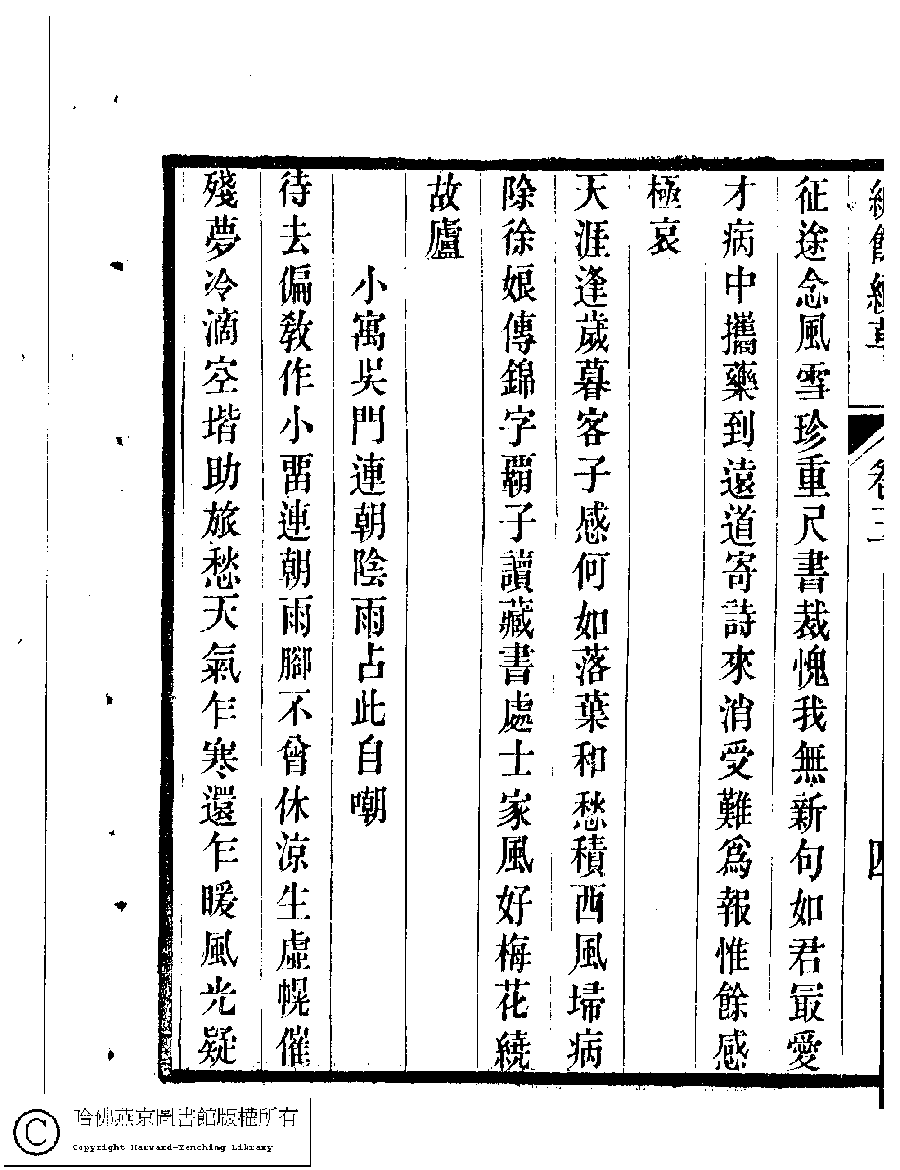 卷三
四
征途念風雪珍重尺書裁愧我無新句如君最愛
才病中攜藥到遠道寄詩來消受難爲報惟餘感
極哀
天涯逢歲暮客子感何如落葉和愁積西風埽病
除徐娘傳錦字覇子讀藏書處士家風好梅花繞
故廬
小寓吳門連朝陰雨占此自嘲
待去偏敎作小畱連朝雨腳不曾休涼生虛幌催
殘夢冷滴空堦助旅愁天氣乍寒還乍暖風光疑
哈佛燕京圖書館版權所有
Copyright Harvard-Yenching Library